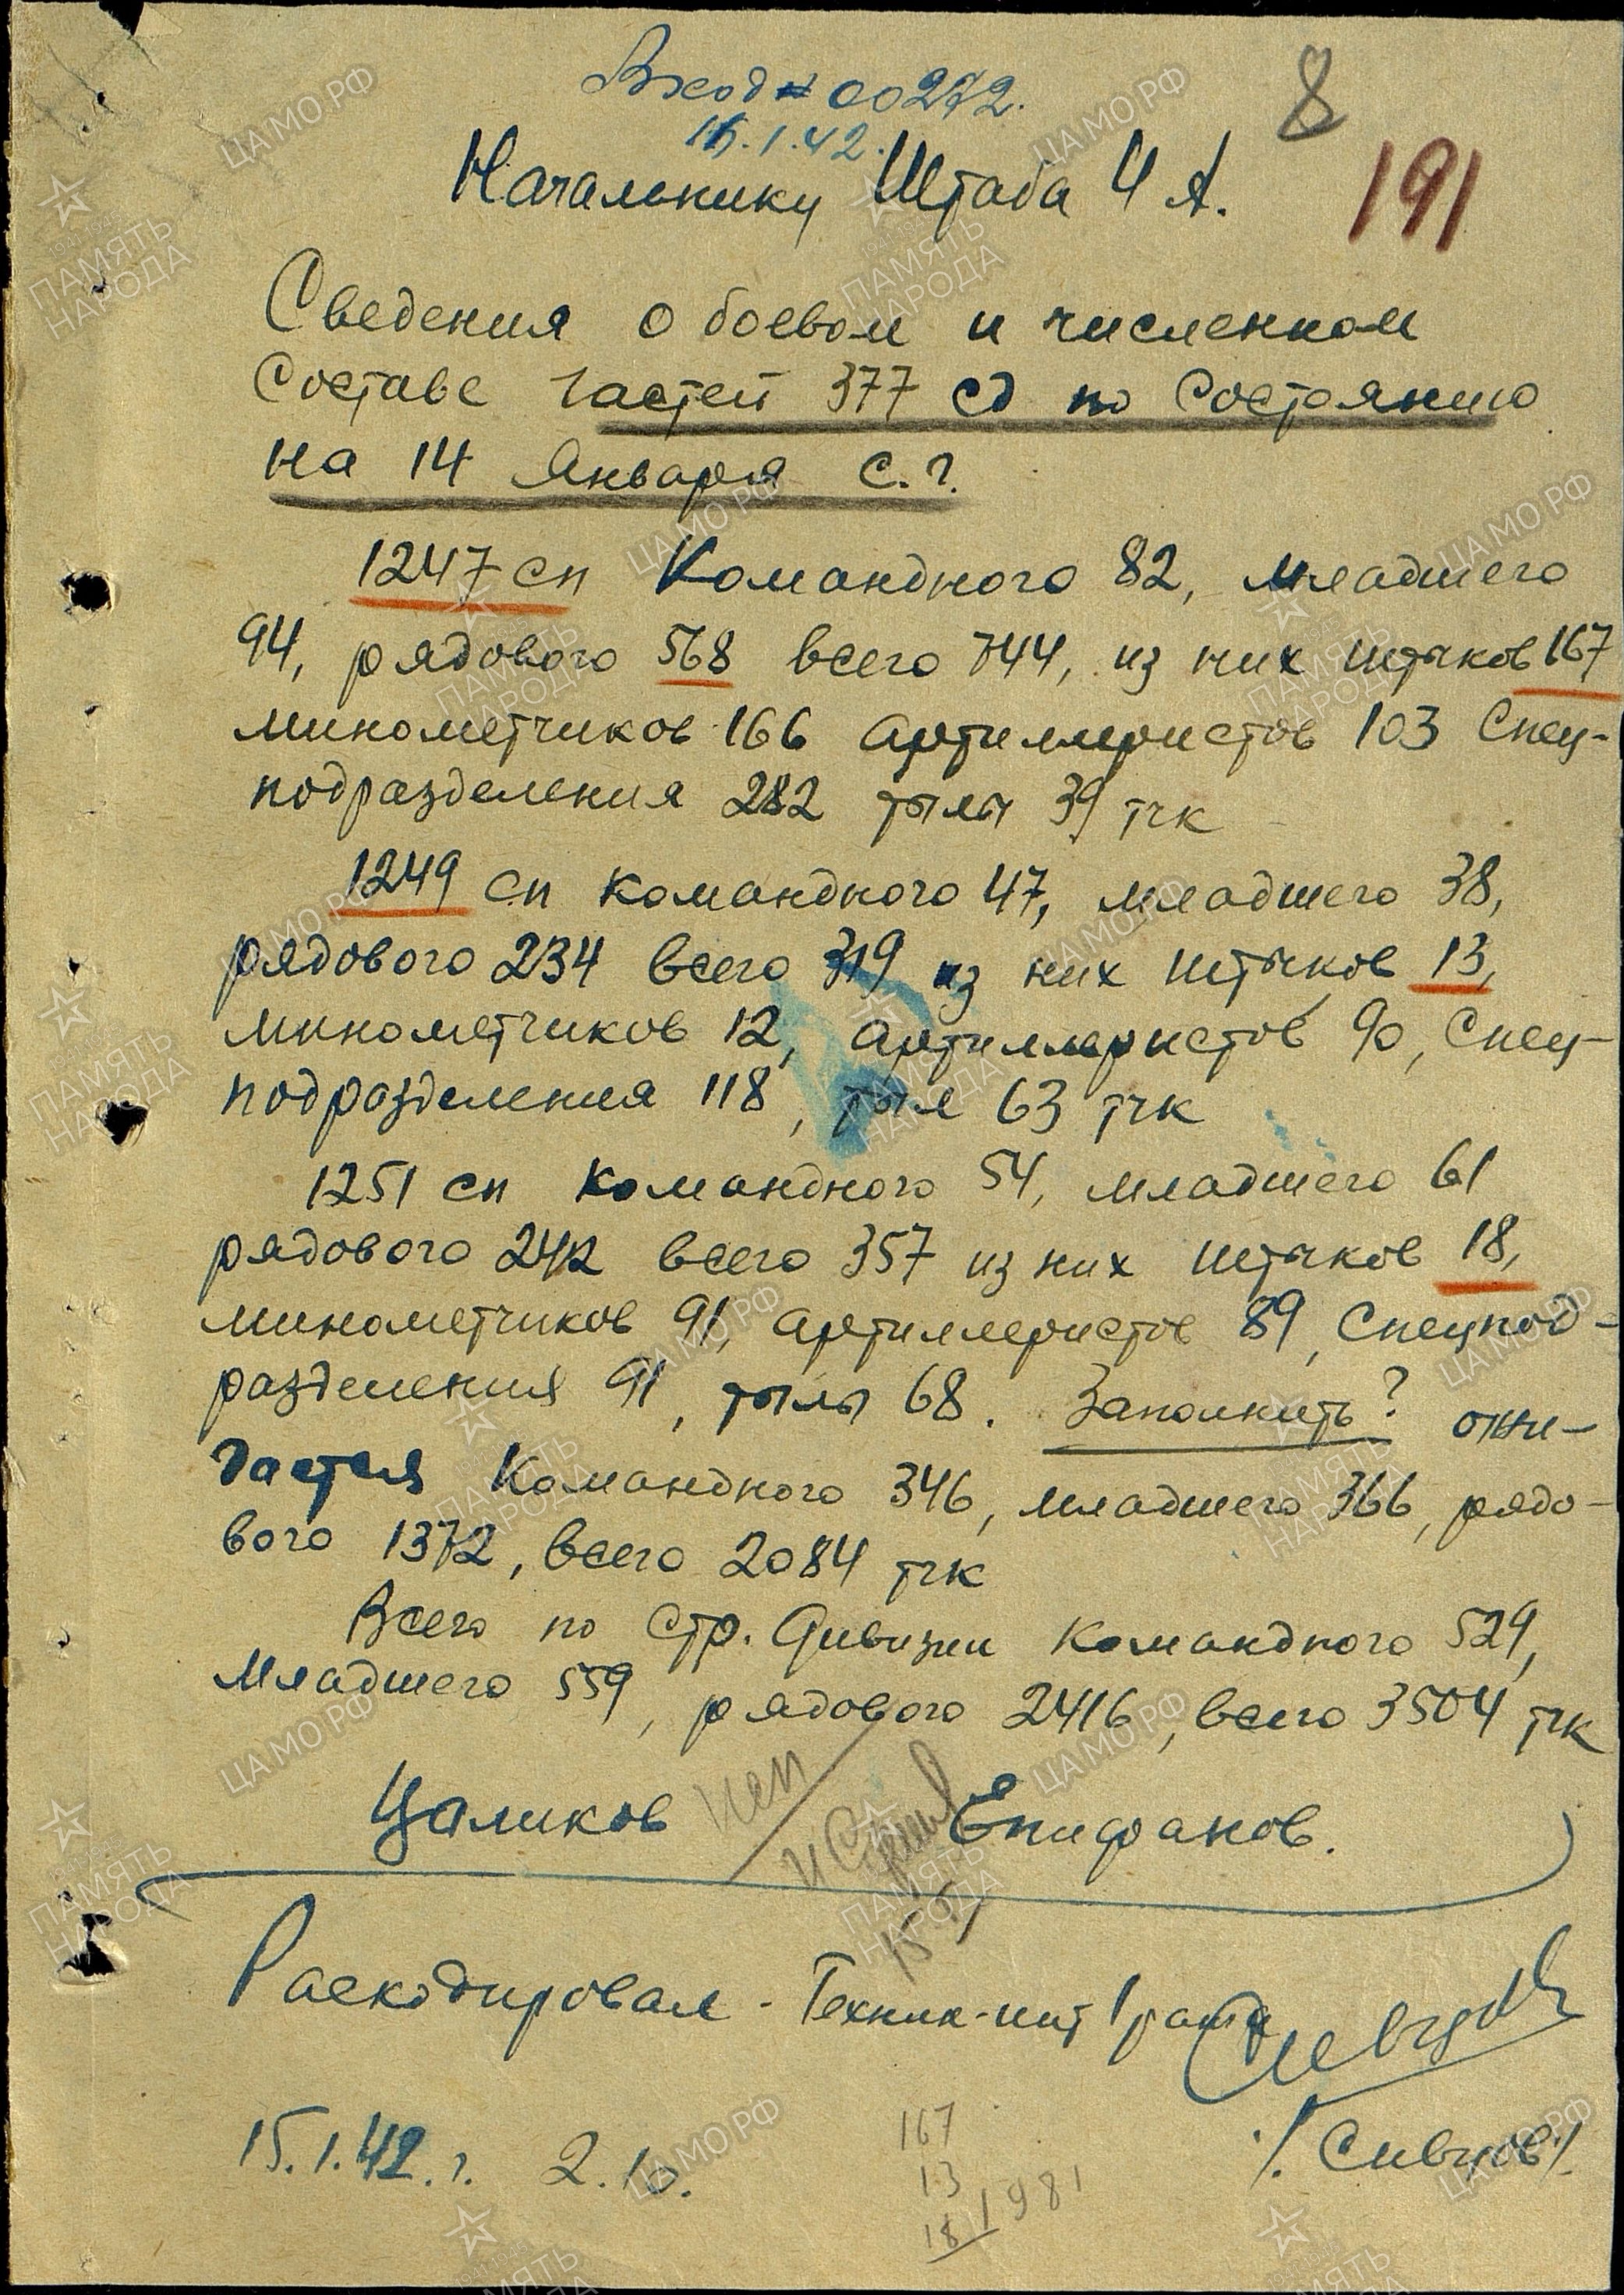 Вход № 00272.
15.1.42.
8
Начальнику Штаба 4 А.
191
Сведения о боевом и численном
составе частей 377 сд по состоянию
на 14 января с.г.
1247 сп Командного 82, младшего
94, рядового 568 всего 744, из них штыков 167
минометчиков 166 артиллеристов 103 Спец-
подразделения 282 тылы 39 тчк
1249 сп командного 47, младшего 38,
рядового 234 всего 319 из них штыков 13,
минометчиков 12, артиллеристов 90, Спец-
подразделения 118, тыл 63 тчк
1251 сп командного 54, младшего 61
рядового 242 всего 357 из них штыков 18,
минометчиков 91, артиллеристов 89, Спецпод-
разделения 91, тылы 68. Заполнить?
частях Командного 346, младшего 366, рядо-
вого 1372, всего 2084 тчк
Всего по стр. Дивизии командного 529,
младшего 559, рядового 2416, всего 3504 тчк
Цаликов Епифанов.
Раскодировал - Техник-инт 1 ранга
15.1.42.г. 2.10.
/Сивцов/.
167
13
18
198
ЦАМО РФ
ПАМЯТЬ НАРОДА